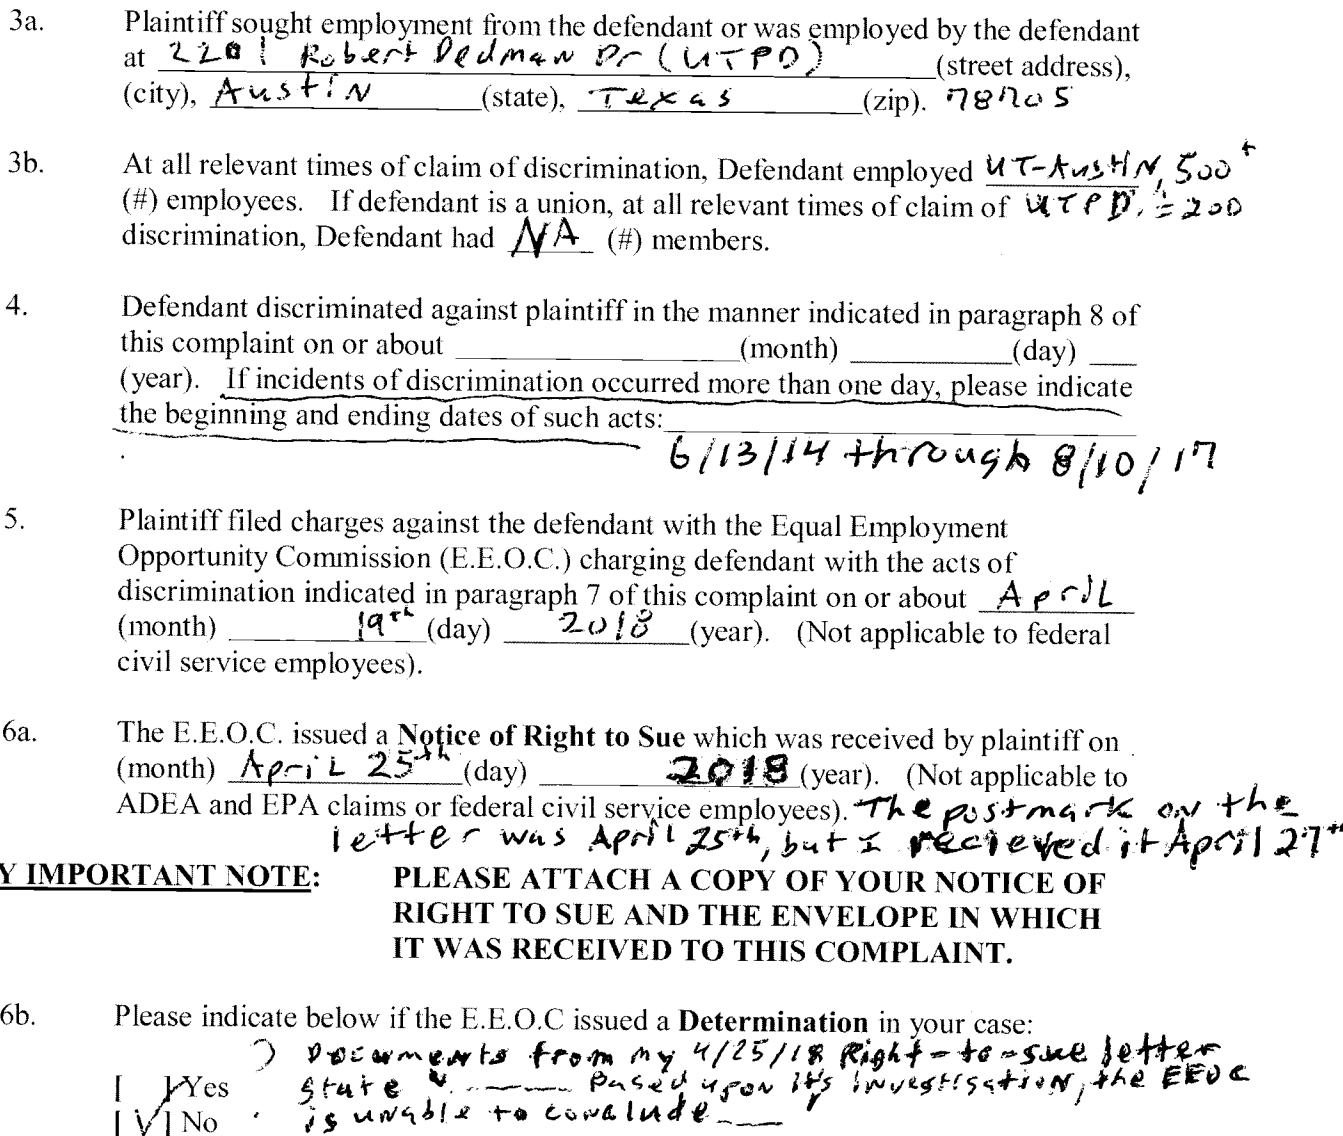 3a. Plaintiff sought employment from the defendant or was employed by the defendant
at 2201 Robert Dedman Dr (UTPD) (street address),
(city), Austin (state), Texas (zip). 78705
3b. At all relevant times of claim of discrimination, Defendant employed UT-Austin, 500+
(#) employees. If defendant is a union, at all relevant times of claim of UTPD, ≐200
discrimination, Defendant had NA (#) members.
4. Defendant discriminated against plaintiff in the manner indicated in paragraph 8 of
this complaint on or about (month) (day)
(year). If incidents of discrimination occurred more than one day, please indicate
the beginning and ending dates of such acts:
6/13/14 through 8/10/17
5. Plaintiff filed charges against the defendant with the Equal Employment
Opportunity Commission (E.E.O.C.) charging defendant with the acts of
discrimination indicated in paragraph 7 of this complaint on or about April
(month) 19th (day) 2018 (year). (Not applicable to federal
civil service employees).
6a. The E.E.O.C. issued a Notice of Right to Sue which was received by plaintiff on
(month) April 25th (day) 2018 (year). (Not applicable to
ADEA and EPA claims or federal civil service employees). The postmark on the
letter was April 25th, but I recieved it April 27th
Y IMPORTANT NOTE: PLEASE ATTACH A COPY OF YOUR NOTICE OF
RIGHT TO SUE AND THE ENVELOPE IN WHICH
IT WAS RECEIVED TO THIS COMPLAINT.
6b. Please indicate below if the E.E.O.C issued a Determination in your case:
Documents from my 4/25/18 Right-to-sue letter
[ ] Yes state "...... Based upon it's investigation, the EEOC
[√] No is unable to conclude ___